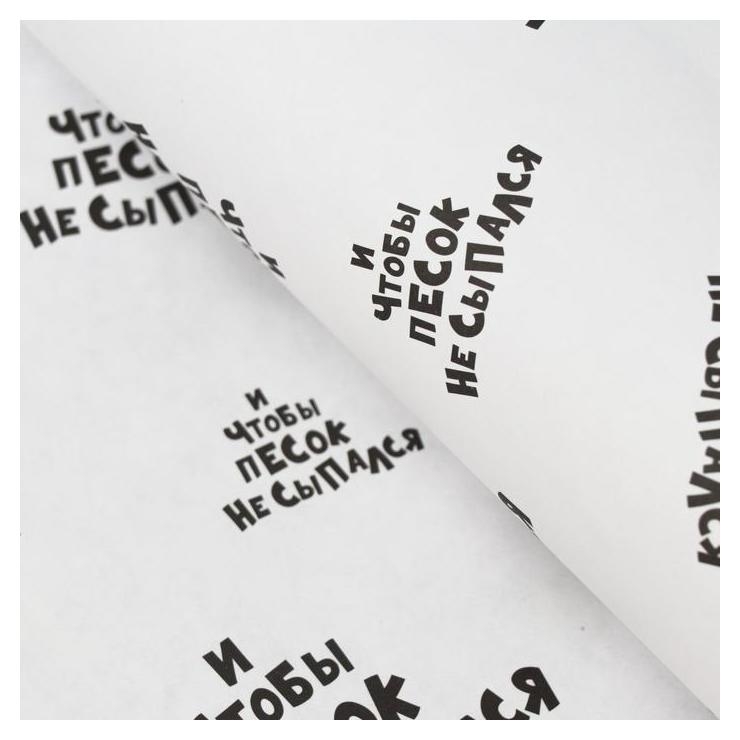 ПЕС
НЕ СЫП
И
ЧТОБЫ
ПЕСОК
НЕ СЫПАЛСЯ
И
ЧТОБЫ
ПЕСОК
НЕ СЫПАЛСЯ
И
ЧТОБЫ
ОК
ЛСЯ